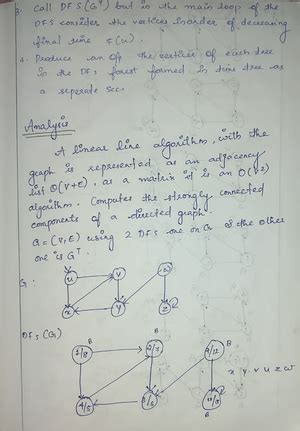 3. Call DFS(G^T) but in the main loop of the
DFS consider the vertices in order of decreasing
final time f(u).
4. Produce an o/p the vertices of each tree
in the DFS forest formed in time tree as
a seperate Scc.
Analysis
A linear line algorithm, with the
graph is represented as an adjacency
list O(V+E), as a matrix it is an O(V2)
algorithm. Computes the strongly connected
components of a directed graph.
G=(V,E) using 2 DFS one on G & the other
one is G^T.
G:
u v w
x y z
DFS(G)
B B B
1/8 2/7 9/12
4/5 3/6 10/11
B
x y v u z w